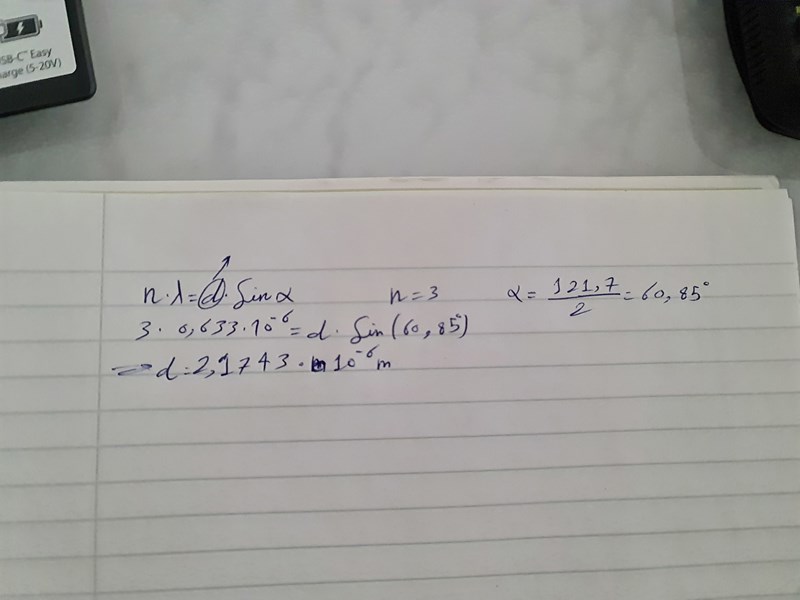 SB-C™ Easy
arge (5-20V)
n·λ=d·Sinα n=3 α=121,7/2=60,85°
3·0,633·10⁻⁶=d·Sin(60,85°)
d=2,1743·10⁻⁶m